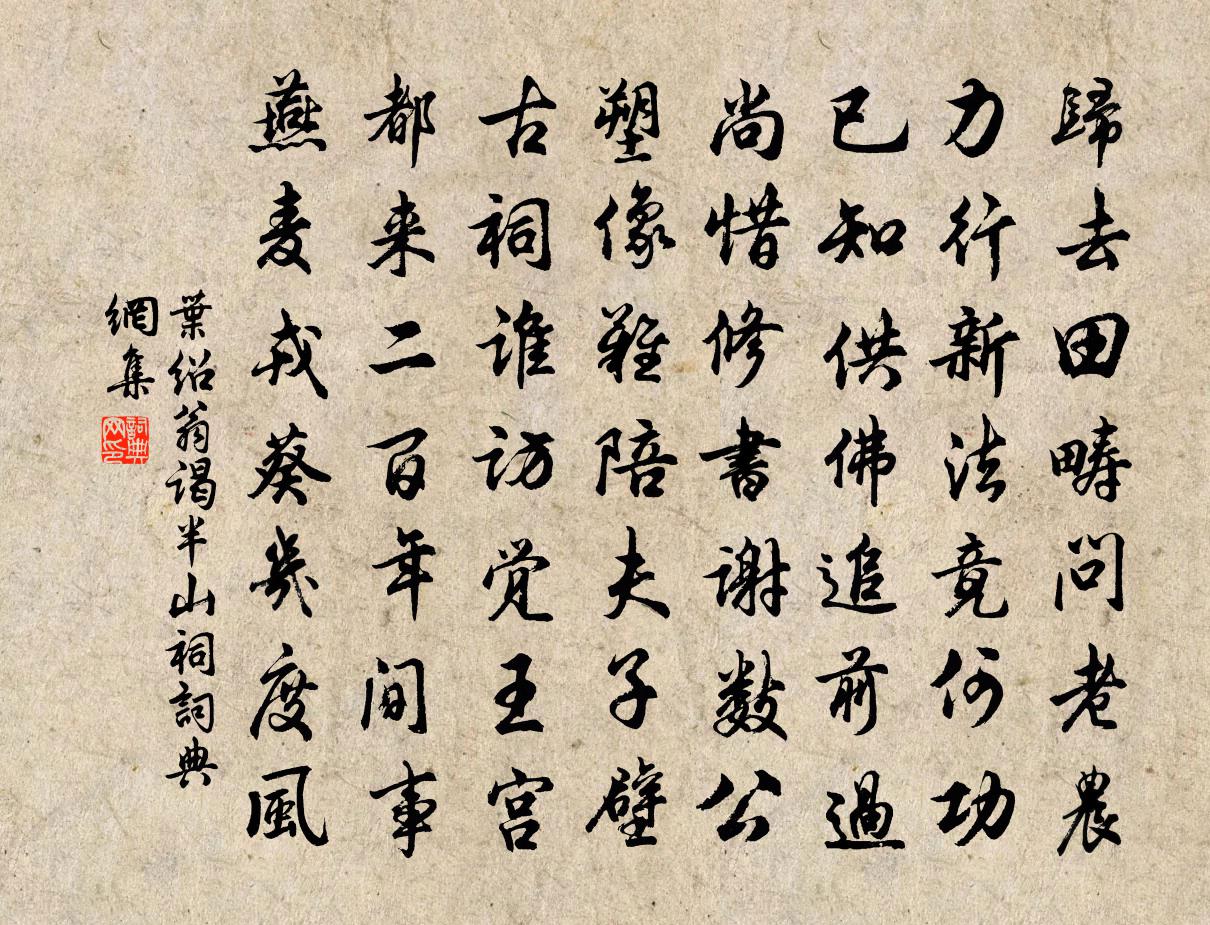 歸去田疇問老農
力行新法竟何功
已知供佛追前過
尚惜修書謝數公
塑像難陪夫子壁
古祠誰訪覺王宮
都来二百年间事
燕麦戎葵幾度風
葉紹翁谒半山祠詞典
網集
詞典网印